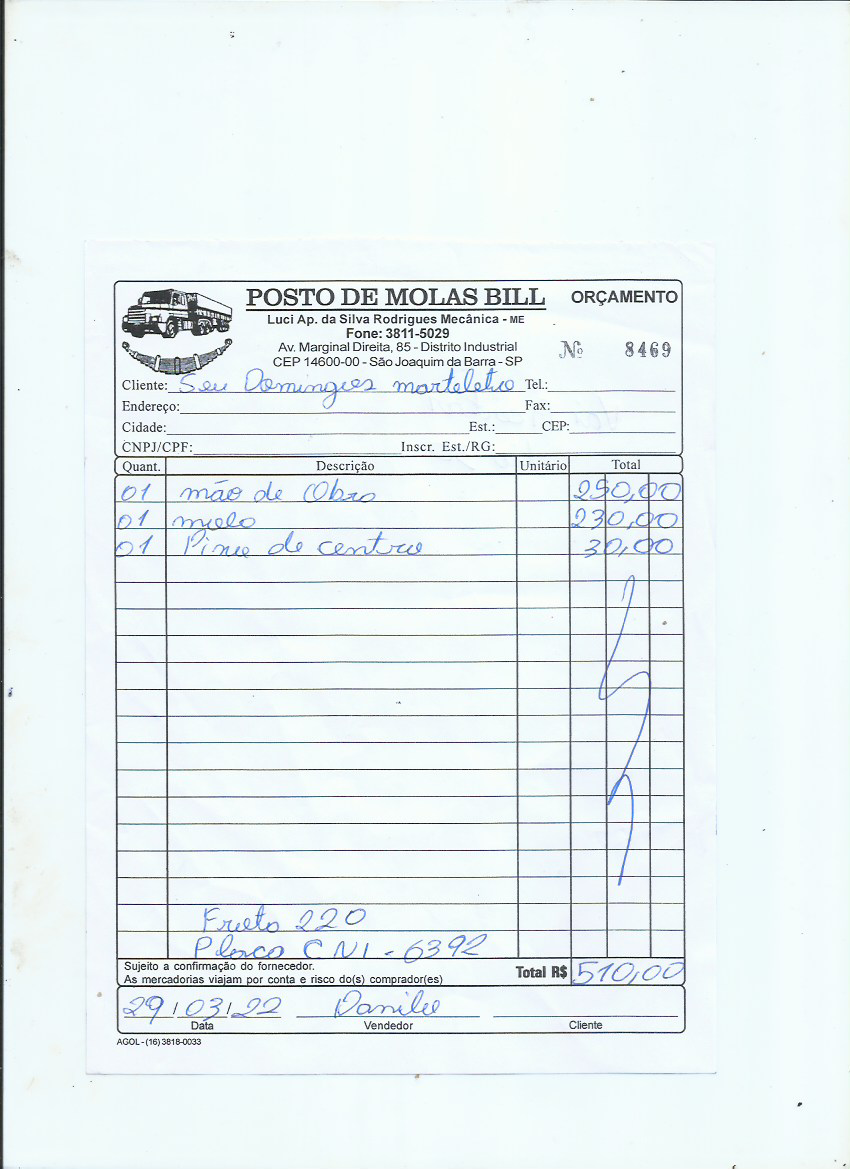 POSTO DE MOLAS BILL ORÇAMENTO
Luci Ap. da Silva Rodrigues Mecânica - ME
Fone: 3811-5029
Av. Marginal Direita, 85 - Distrito Industrial
CEP 14600-00 - São Joaquim da Barra - SP
Nº 8469
Cliente: Seu Domingues Tel.:
Endereço: Fax:
Cidade: Est.: CEP:
CNPJ/CPF: Inscr. Est./RG:
Quant. Descrição Unitário Total
01 mão de Obra 250,00
01 molo 230,00
01 Pino de centro 30,00
220
Placa CNI-6392
Sujeito a confirmação do fornecedor.
As mercadorias viajam por conta e risco do(s) comprador(es)
Total R$ 510,00
29/03/22 Danilo
Data Vendedor Cliente
AGOL - (16) 3818-0033